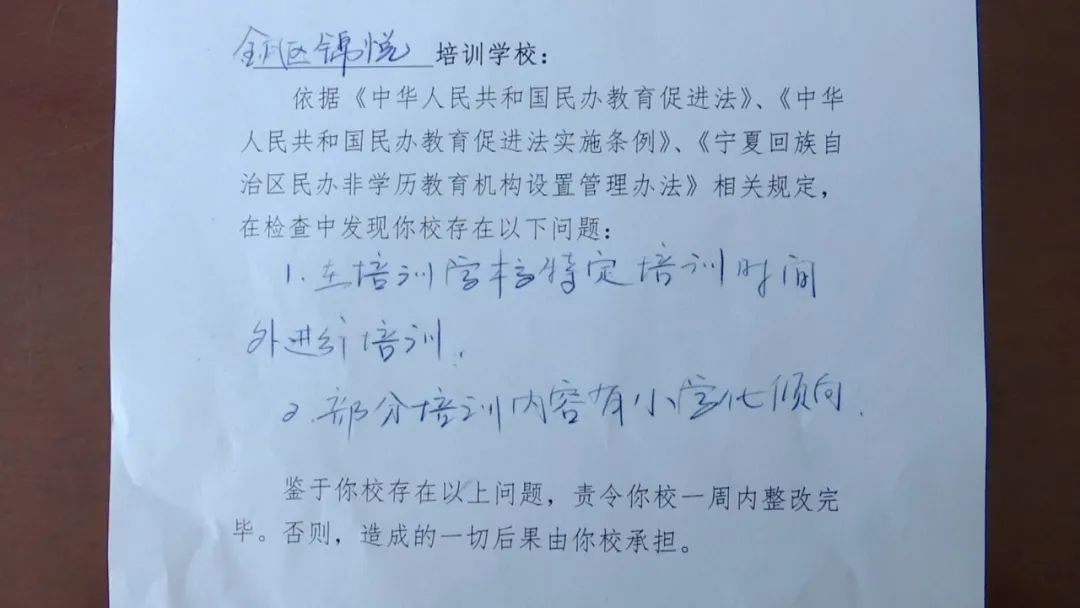 金凤区锦悦 培训学校：
依据《中华人民共和国民办教育促进法》、《中华
人民共和国民办教育促进法实施条例》、《宁夏回族自
治区民办非学历教育机构设置管理办法》相关规定，
在检查中发现你校存在以下问题：
1.在培训学校特定培训时间
外进行培训.
2.部分培训内容有小学化倾向.
鉴于你校存在以上问题，责令你校一周内整改完
毕。否则，造成的一切后果由你校承担。